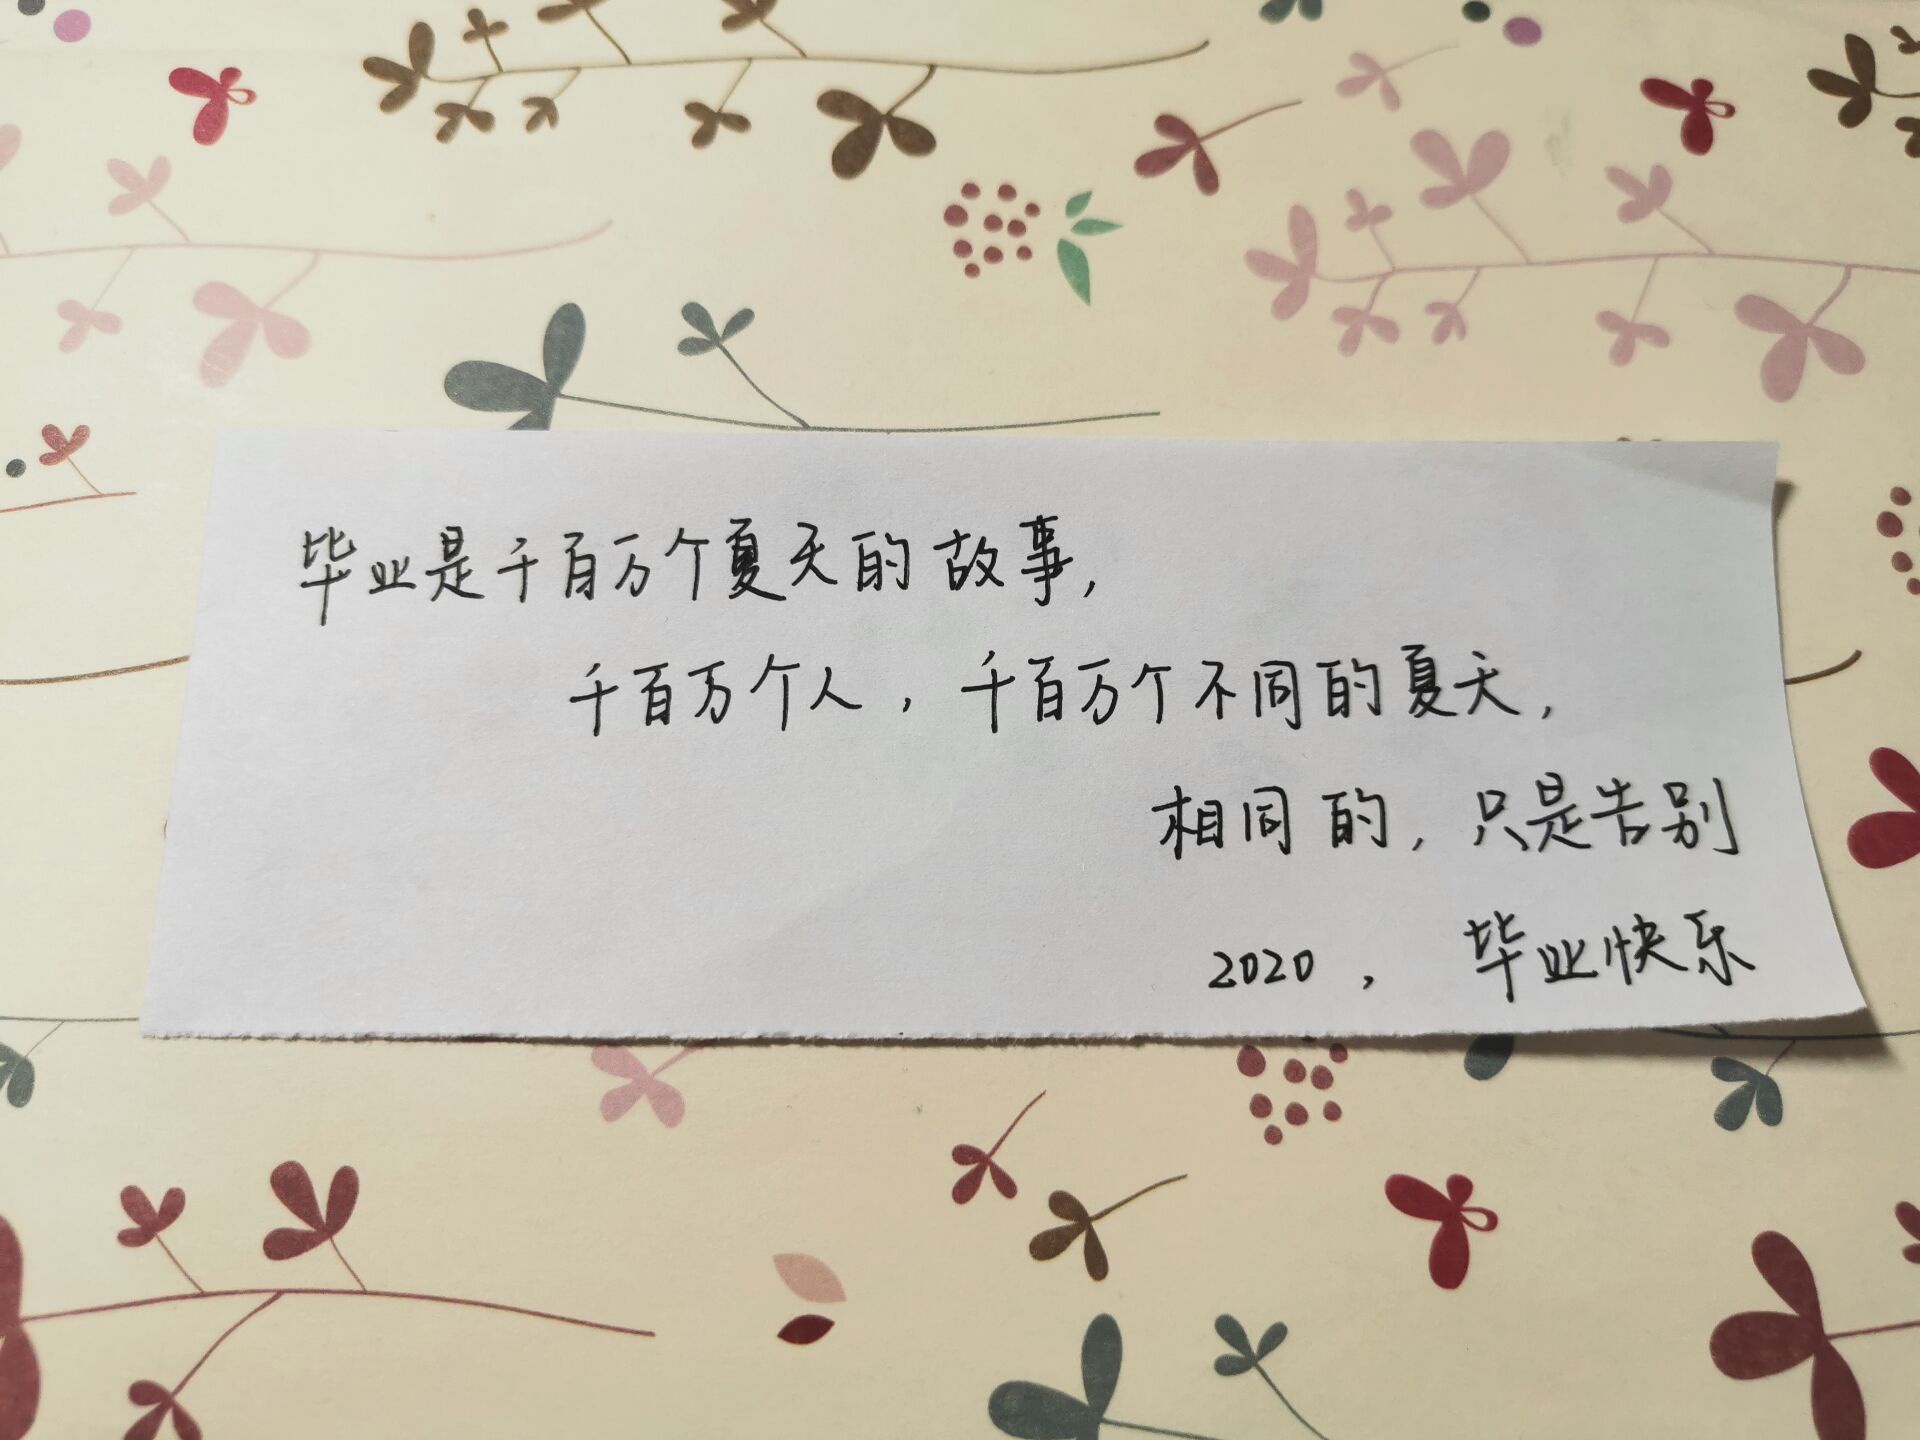 毕业是千百万个夏天的故事,
千百万个人,千百万个不同的夏天,
相同的,只是告别
2020,毕业快乐